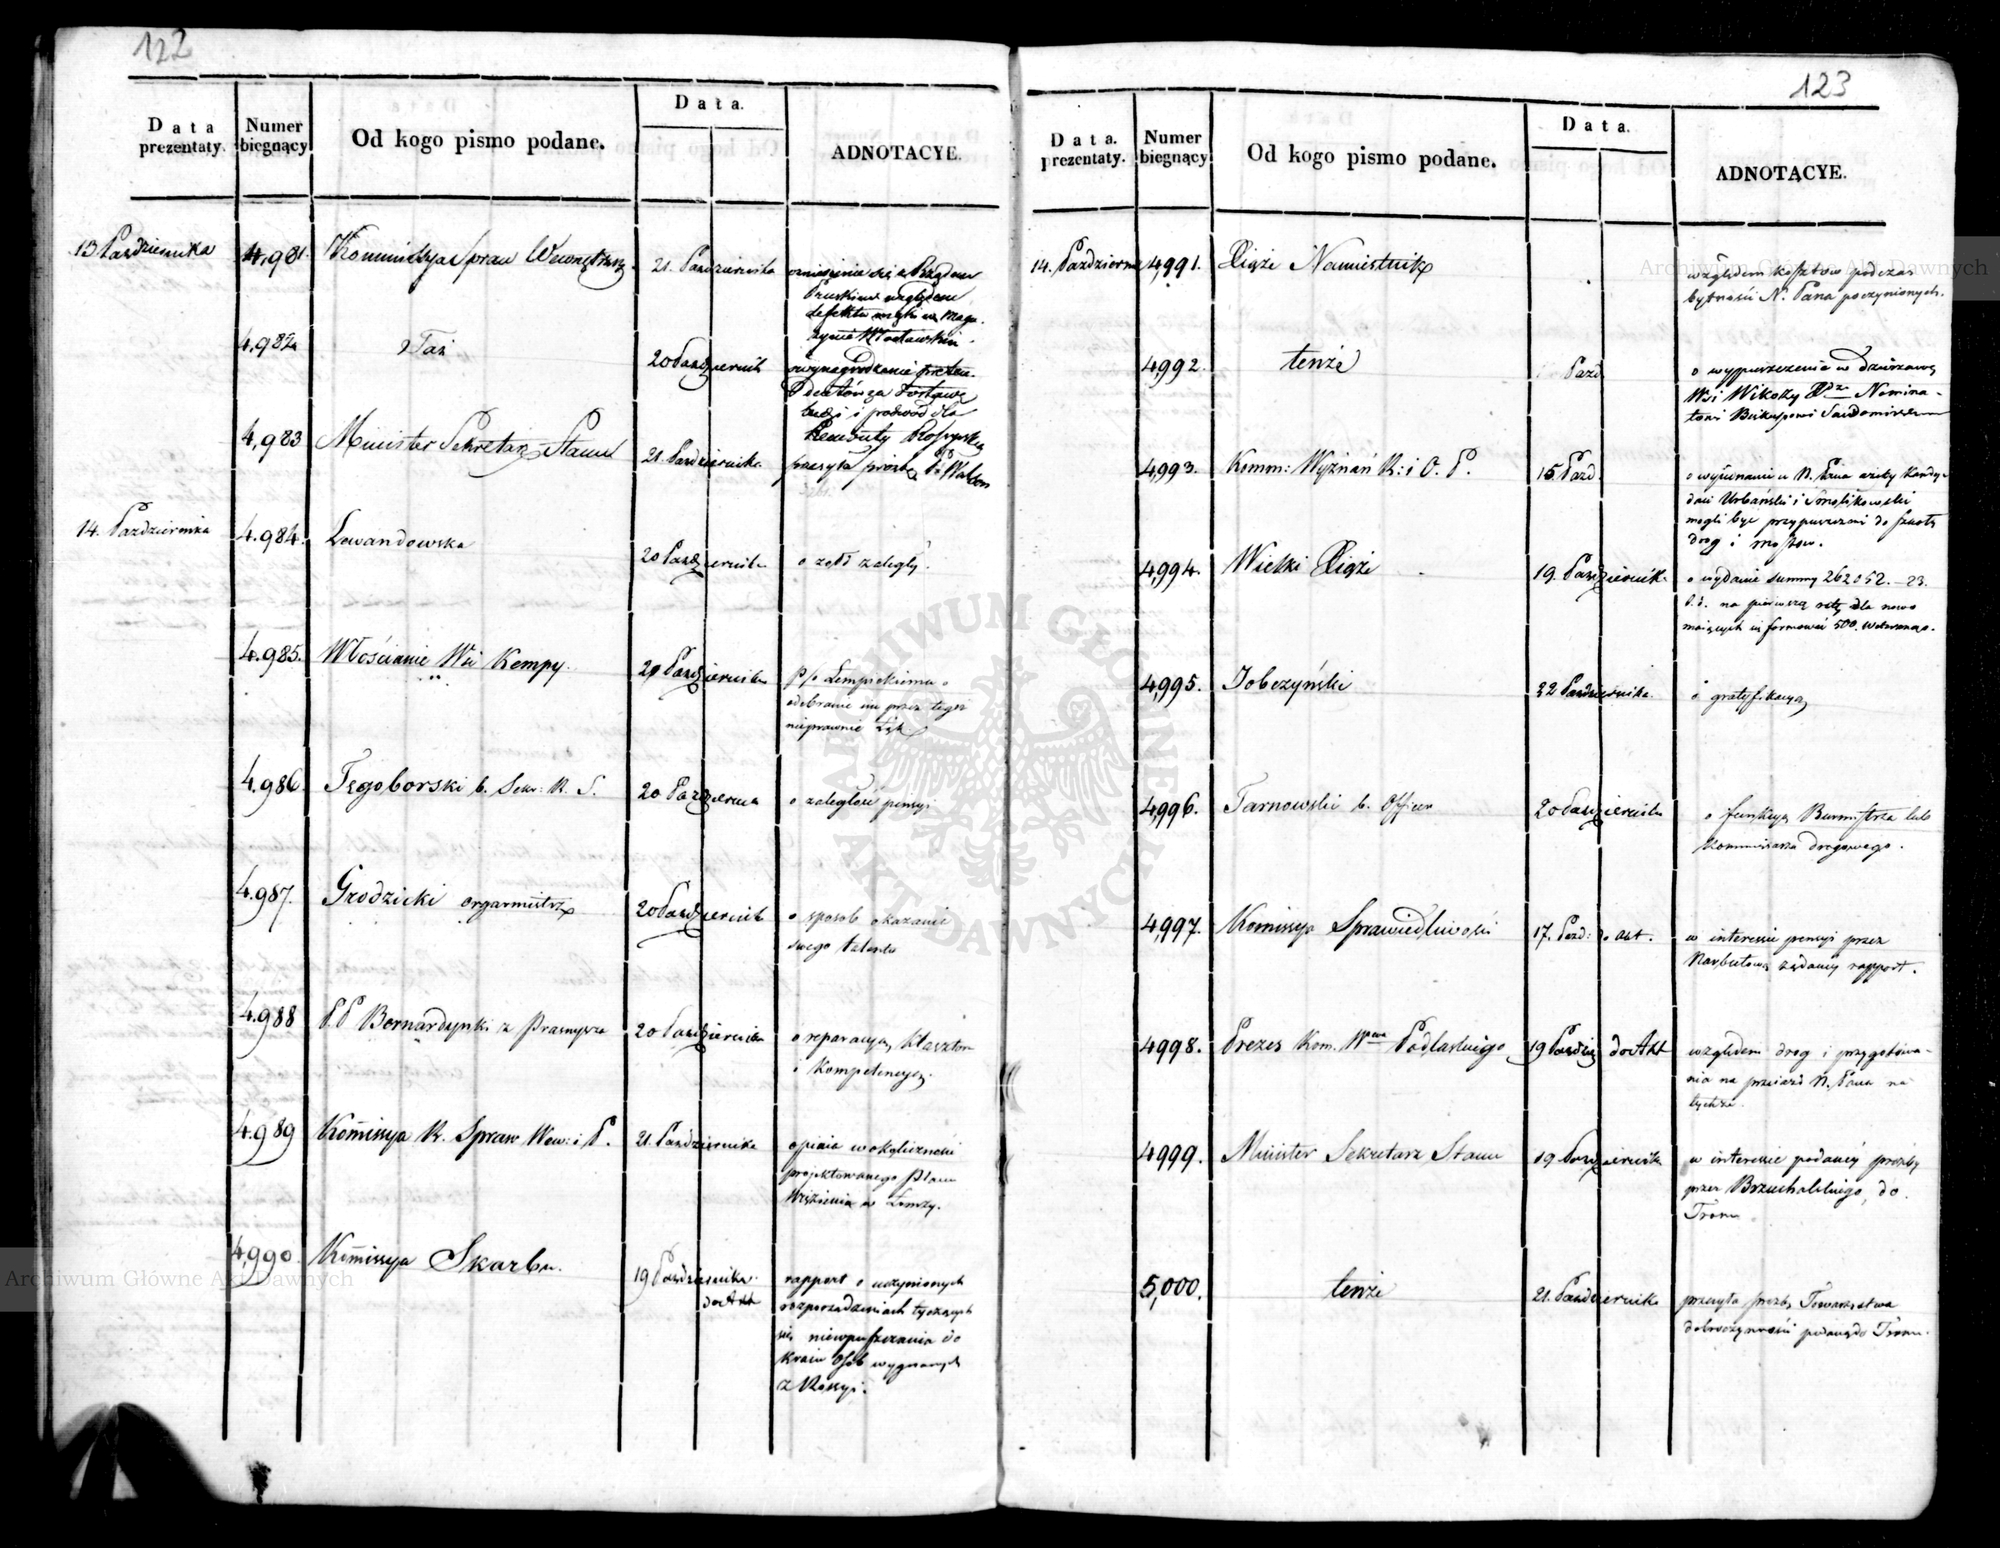 122
Data prezentaty.
Numer biegnący
Od kogo pismo podane.
Data.
ADNOTACYE.
13 Października 4,981. Kommissya Spraw Wewnętrz. 21. Października
zniesienie się z Rządem
Pruskim względem
defektu mąki w Maga-
zynie Włocławskim.
4,982 Taż 20 Październik
o wynagrodzenie preten-
dentów za dostawę
i podwód dla
Remonty Rossyiskiey
4,983 Minister Sekretarz Stanu 21. Października.
przesyła prośbę
14. Października 4.984. Lewandowska 20 Październik
o żołd zaległy.
4.985. Włościanie Wsi Kempy. 20 Październik
P/o Lempickiemu o
odebranie im przez tegoż
nieprawnie Łąk
4.986. Tęgoborski b. Sekr: R. S. 20 Październik
o zaległość pensyi
4.987. Grodzicki organmistrz 20 Październik
o sposób okazania
swego talentu
4.988 P.P Bernardynki z Prasnysza 20 Października
o reparacyą klasztoru
i kompetencyą.
4.989 Kommissya R. Spraw Wew: i P. 21. Października
opinia w okoliczności
projektowanego planu
Więzienia w Łomży.
4,990. Kommissya Skarbu. 19 Października do Akt
rapport o uczynionych
rozporządzeniach tyczących
się niewpuszczania do
kraiu Osób wygnanych
z Rossyi.
123
Data. prezentaty.
Numer biegnący
Od kogo pismo podane.
Data.
ADNOTACYE.
14. Październi 4,991. Xiąże Namiestnik
względem kosztów podczas
bytności N. Pana poczynionych.
4,992. tenże Paźd
o wypuszczenie w dzierżawę
Wsi Wikozy Xdzu Nomina-
towi Biskupowi Sandomirskiemu
4,993. Komm: Wyznań R: i O. P. 15 Paźd.
o wyiednanie u N. Pana ażeby kandy-
daci Urbański i Smolikowski
mogli być przypuszczeni do Szkoły
dróg i mostów.
4,994. Wielki Xiąże 19. Październik.
o wydanie summy 262052.-23.
na pierwszą ratę dla nowo
maiących się formować 500. Weteranów.
4,995. Jobczyński 22 Października.
o gratyfikacyą
4,996. Tarnowski b. Officer 20 Październik
o funkcyą Burmistrza lub
Kommissarza drogowego.
4,997. Komissya Sprawiedliwości 17. Paźd: do akt.
w interessie pensyi przez
Narbutową żądaney rapport.
4998. Prezes Kom. Wdztwa Podlaskiego 19 Paździer do Akt
względem dróg i przygotowa-
nia na przeiazd N. Pana na
tychże.
4999. Minister Sekretarz Stanu 19 Październik
w interessie podaney prośby
przez Brzuchalskiego, do
Tronu
5,000. tenże 21. Październik
przesyła prośbę Towarzystwa
dobroczynności podaną do Tronu.
Archiwum Główne Akt Dawnych
Archiwum Główne Akt Dawnych
ARCHIWUM GŁÓWNE AKT DAWNYCH